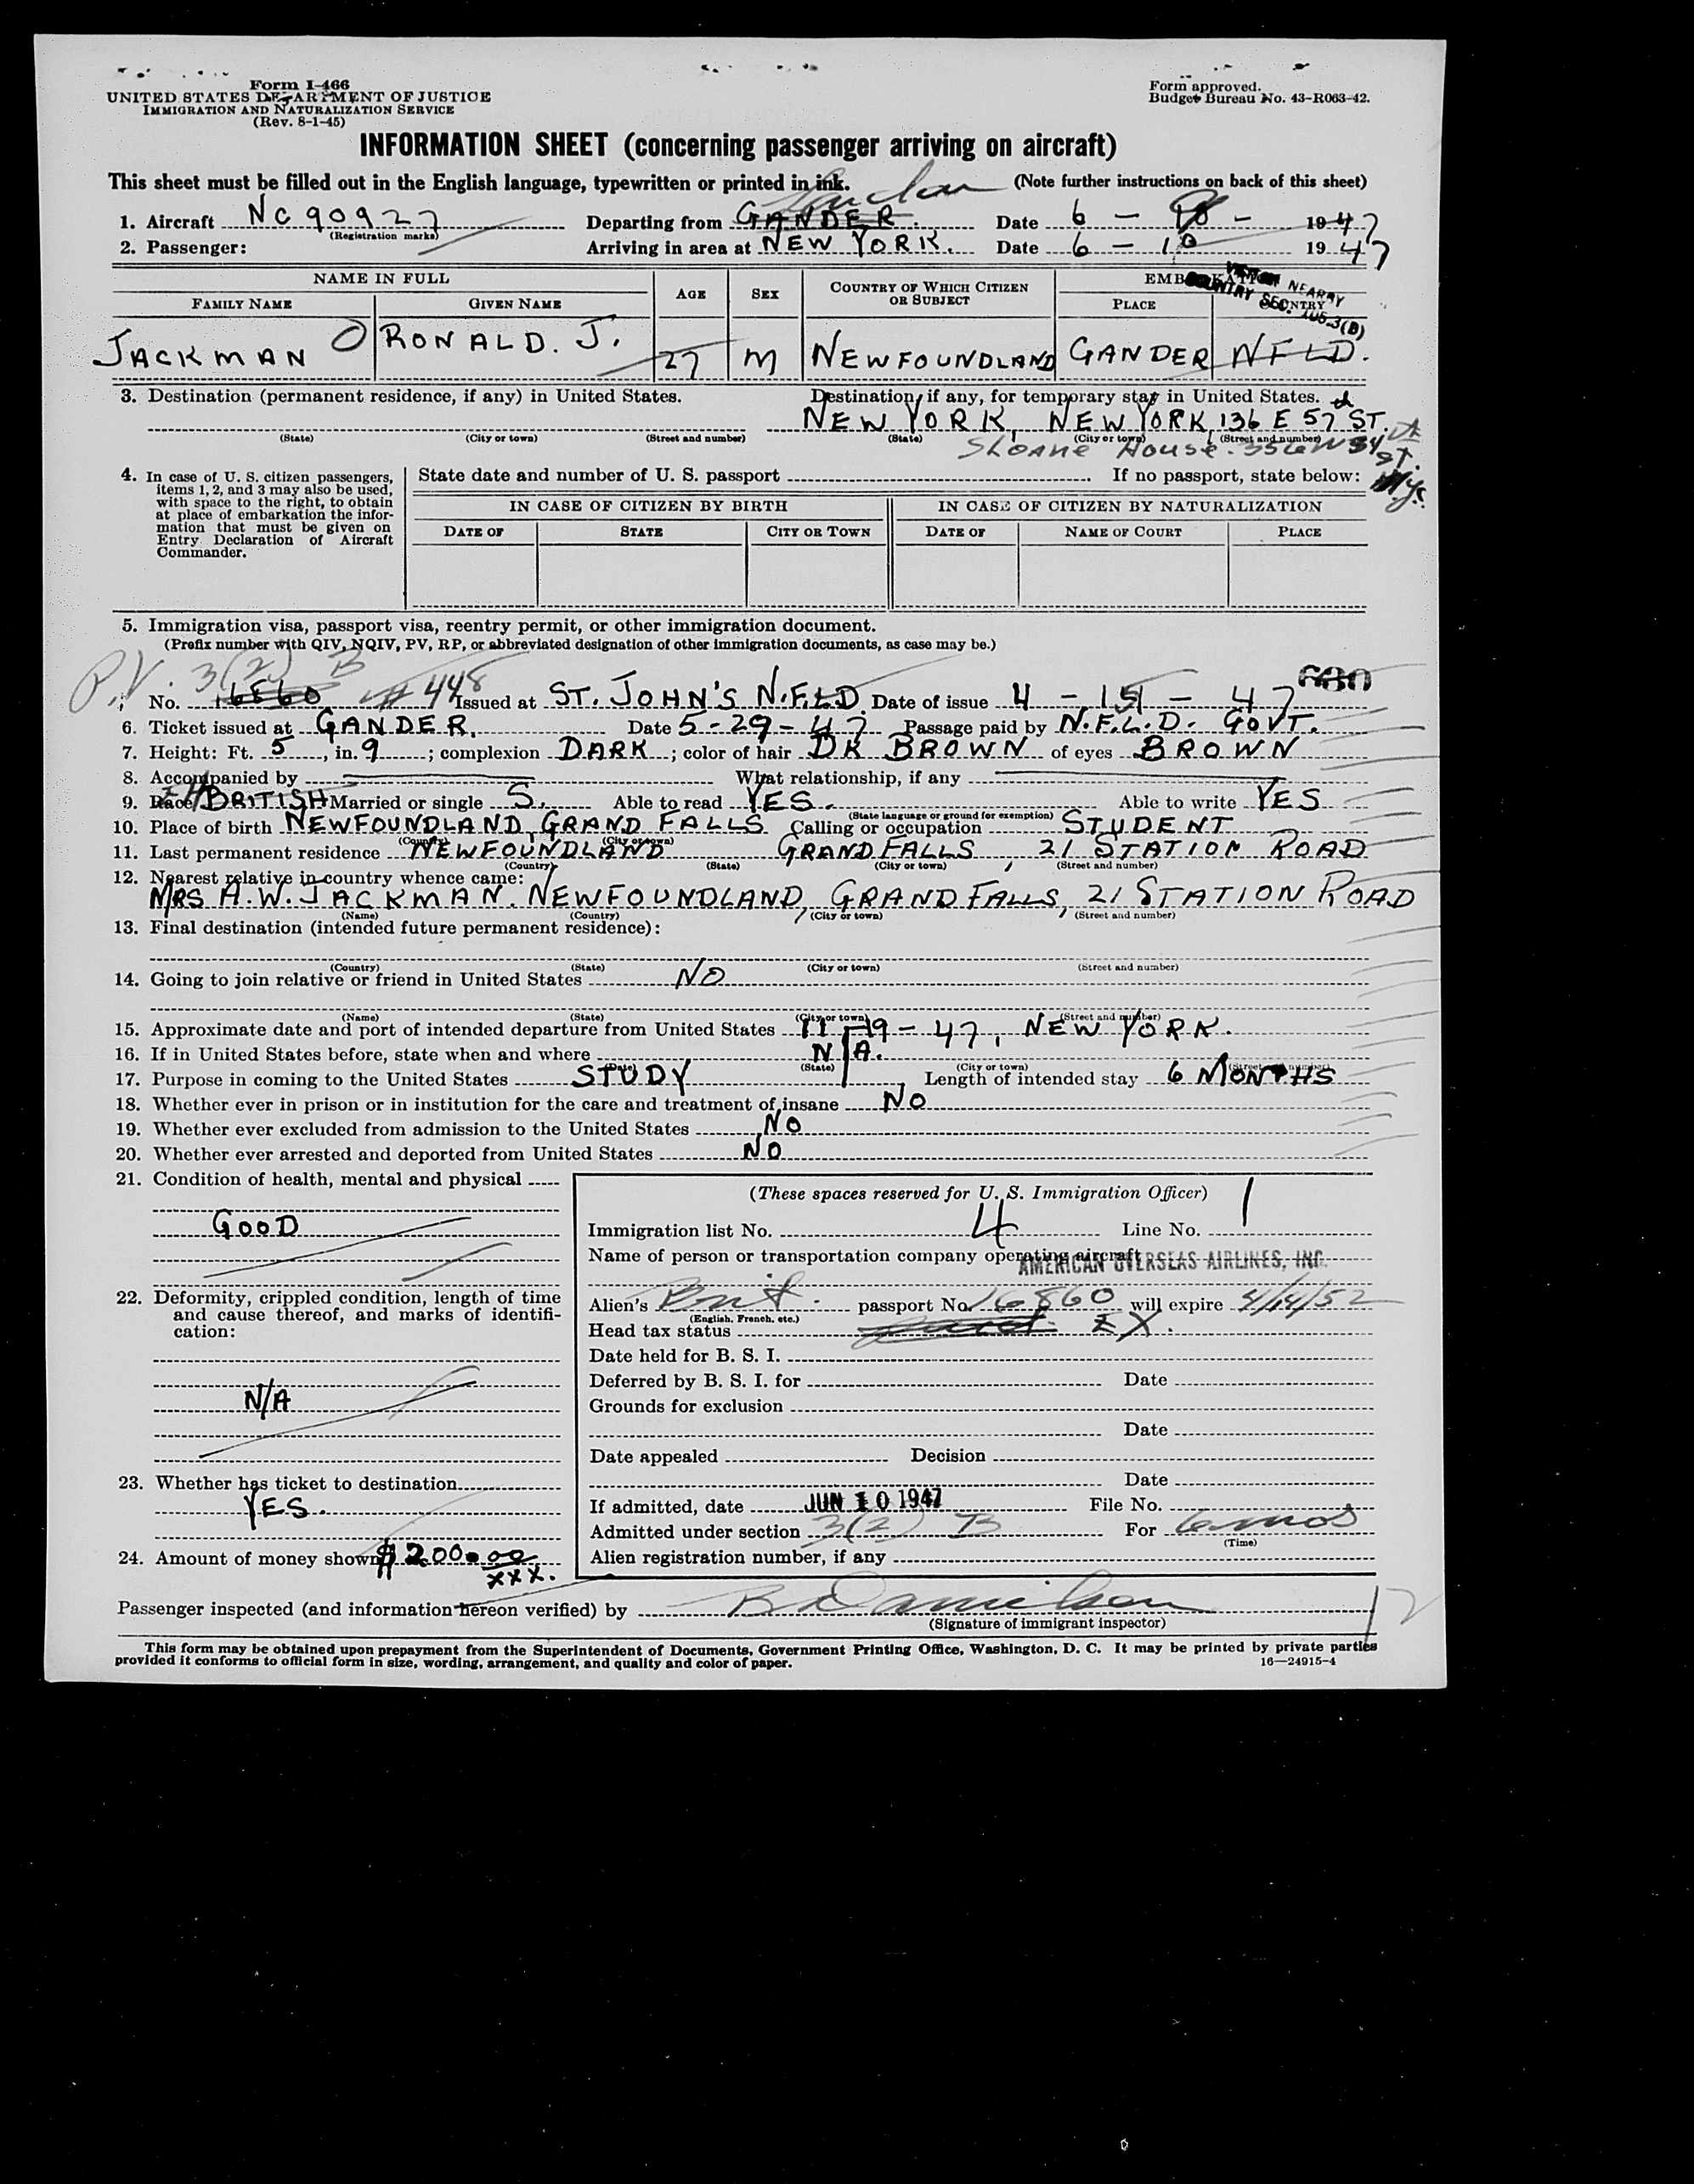 Form I-466
UNITED STATES DEPARTMENT OF JUSTICE
IMMIGRATION AND NATURALIZATION SERVICE
(Rev. 8-1-45)
Form approved.
Budget Bureau No. 43-R063-42.
INFORMATION SHEET (concerning passenger arriving on aircraft)
This sheet must be filled out in the English language, typewritten or printed in ink. (Note further instructions on back of this sheet)
London
1. Aircraft NC90927 Departing from GANDER. Date 6 - - 1947
(Registration marks)
2. Passenger: Arriving in area at NEW YORK. Date 6 - 10 1947
NAME IN FULL AGE SEX COUNTRY OF WHICH CITIZEN OR SUBJECT EMBARKATION
FAMILY NAME GIVEN NAME PLACE COUNTRY
NEARBY
COUNTRY SEC. 3(B)
JACKMAN RONALD. J. 27 M NEWFOUNDLAND GANDER NFLD.
3. Destination (permanent residence, if any) in United States. Destination, if any, for temporary stay in United States.
NEW YORK, NEW YORK, 136 E 57 ST.
(State) (City or town) (Street and number) (State) (City or town) (Street and number)
Sloane House. 356 W 34 St.
4. In case of U. S. citizen passengers, items 1, 2, and 3 may also be used, with space to the right, to obtain at place of embarkation the information that must be given on Entry Declaration of Aircraft Commander.
State date and number of U. S. passport If no passport, state below:
IN CASE OF CITIZEN BY BIRTH IN CASE OF CITIZEN BY NATURALIZATION
DATE OF STATE CITY OR TOWN DATE OF NAME OF COURT PLACE
5. Immigration visa, passport visa, reentry permit, or other immigration document.
(Prefix number with QIV, NQIV, PV, RP, or abbreviated designation of other immigration documents, as case may be.)
P.V. 3(2) B 680
No. 16860 #448 Issued at ST. JOHN'S N.F.L.D. Date of issue 4 - 15 - 47
6. Ticket issued at GANDER. Date 5-29-47 Passage paid by N.F.L.D. GOVT.
7. Height: Ft. 5, in. 9; complexion DARK; color of hair DK BROWN of eyes BROWN
8. Accompanied by What relationship, if any
9. Race BRITISH Married or single S. Able to read YES. Able to write YES
(State language or ground for exemption)
10. Place of birth NEWFOUNDLAND, GRAND FALLS Calling or occupation STUDENT
(Country) (City or town)
11. Last permanent residence NEWFOUNDLAND GRAND FALLS, 21 STATION ROAD
(Country) (State) (City or town) (Street and number)
12. Nearest relative in country whence came:
MRS A.W. JACKMAN. NEWFOUNDLAND, GRAND FALLS, 21 STATION ROAD
(Name) (Country) (City or town) (Street and number)
13. Final destination (intended future permanent residence):
(Country) (State) (City or town) (Street and number)
14. Going to join relative or friend in United States NO
(Name) (State) (City or town) (Street and number)
15. Approximate date and port of intended departure from United States 11-9-47, NEW YORK.
16. If in United States before, state when and where N/A.
(Date) (State) (City or town) (Street and number)
17. Purpose in coming to the United States STUDY, Length of intended stay 6 MONTHS
18. Whether ever in prison or in institution for the care and treatment of insane NO
19. Whether ever excluded from admission to the United States NO
20. Whether ever arrested and deported from United States NO
21. Condition of health, mental and physical
GOOD
22. Deformity, crippled condition, length of time and cause thereof, and marks of identification:
N/A
23. Whether has ticket to destination
YES.
24. Amount of money shown $200.00
xxx.
(These spaces reserved for U. S. Immigration Officer)
Immigration list No. 4 Line No. 1
Name of person or transportation company operating aircraft
AMERICAN OVERSEAS AIRLINES, INC.
Alien's Brit. passport No. 16860 will expire 4/14/52
(English, French, etc.)
Head tax status EX.
Date held for B. S. I.
Deferred by B. S. I. for Date
Grounds for exclusion
Date
Date appealed Decision
Date
If admitted, date JUN 10 1947 File No.
Admitted under section 3(2) B For 6 mos
(Time)
Alien registration number, if any
Passenger inspected (and information hereon verified) by
(Signature of immigrant inspector)
This form may be obtained upon prepayment from the Superintendent of Documents, Government Printing Office, Washington, D. C. It may be printed by private parties
provided it conforms to official form in size, wording, arrangement, and quality and color of paper. 16—24915-4